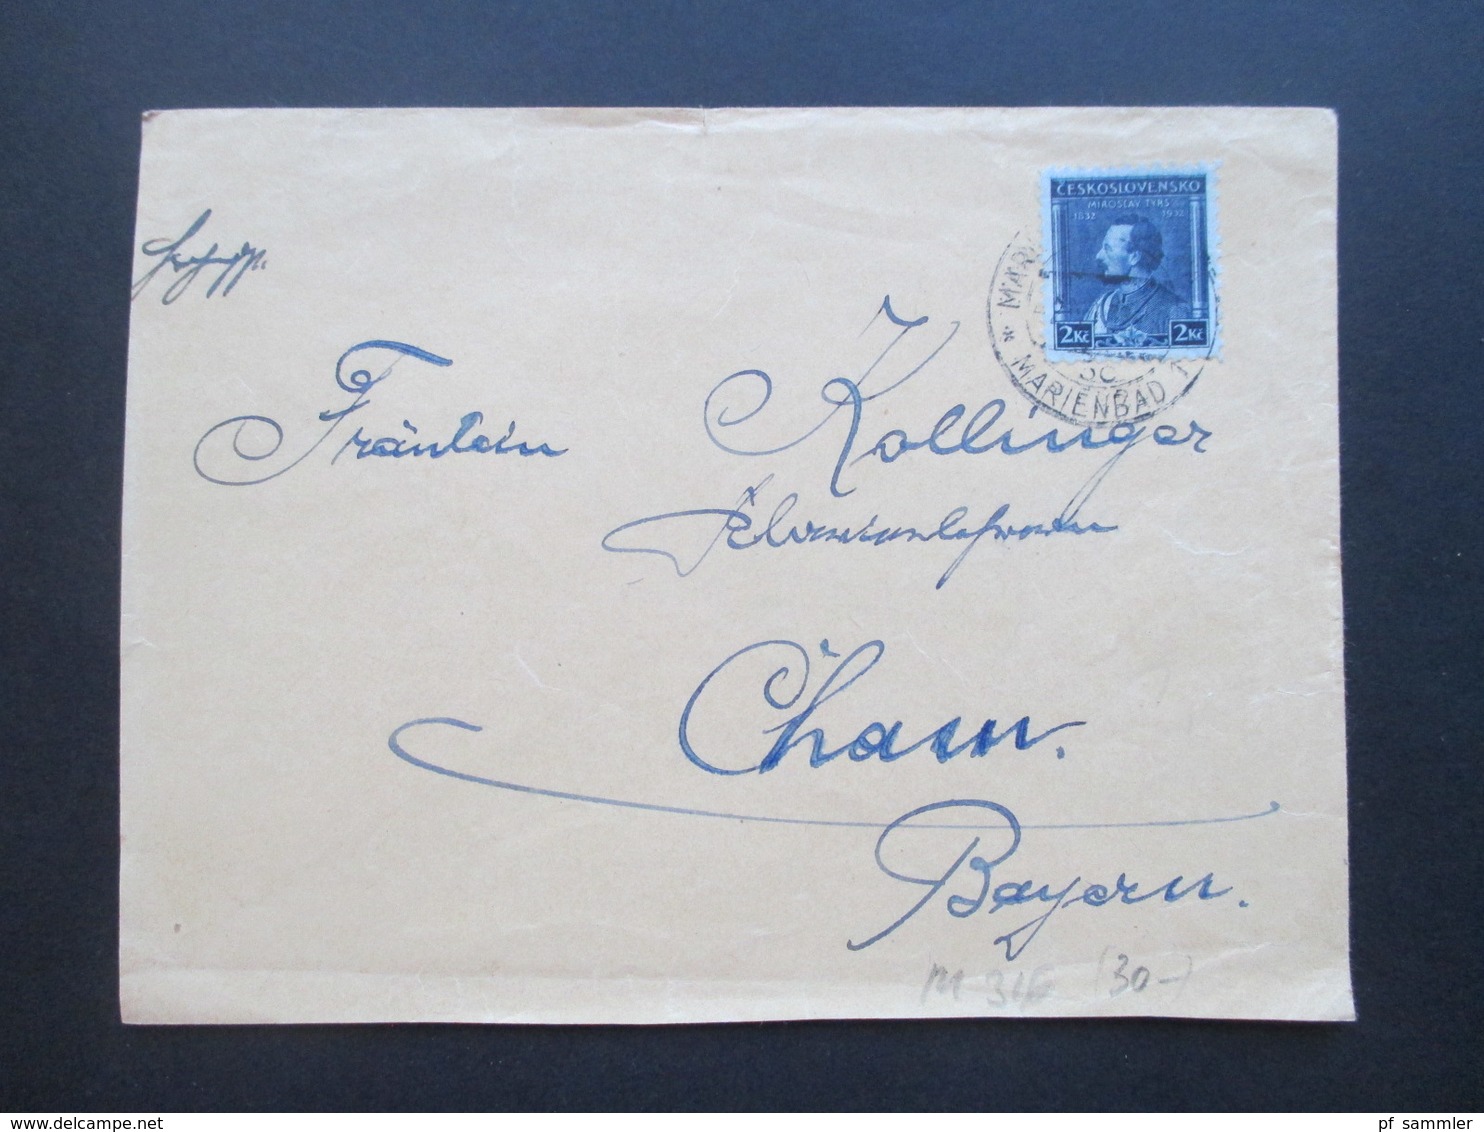 ČESKOSLOVENSKO
MIROSLAV TYRŠ
1832 1932
2Kč 2Kč
* MARIENBAD 1
Fräulein Kollinger
Cham.
Bayern.
(30-)
delcampe.net
pf_sammler